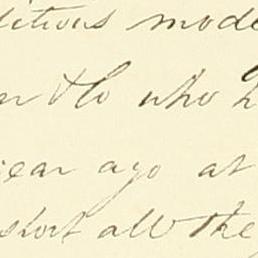 ditious mode
& Co who h
ear ago at
short all the